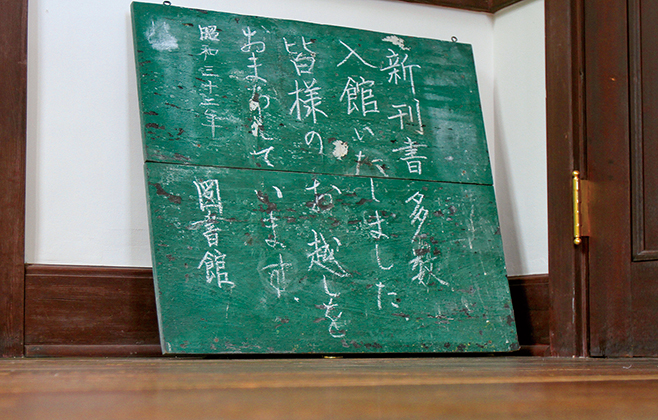 新刊書多数
入館いたしました
皆様のお越しを
おまちしています
昭和三十二年
図書館